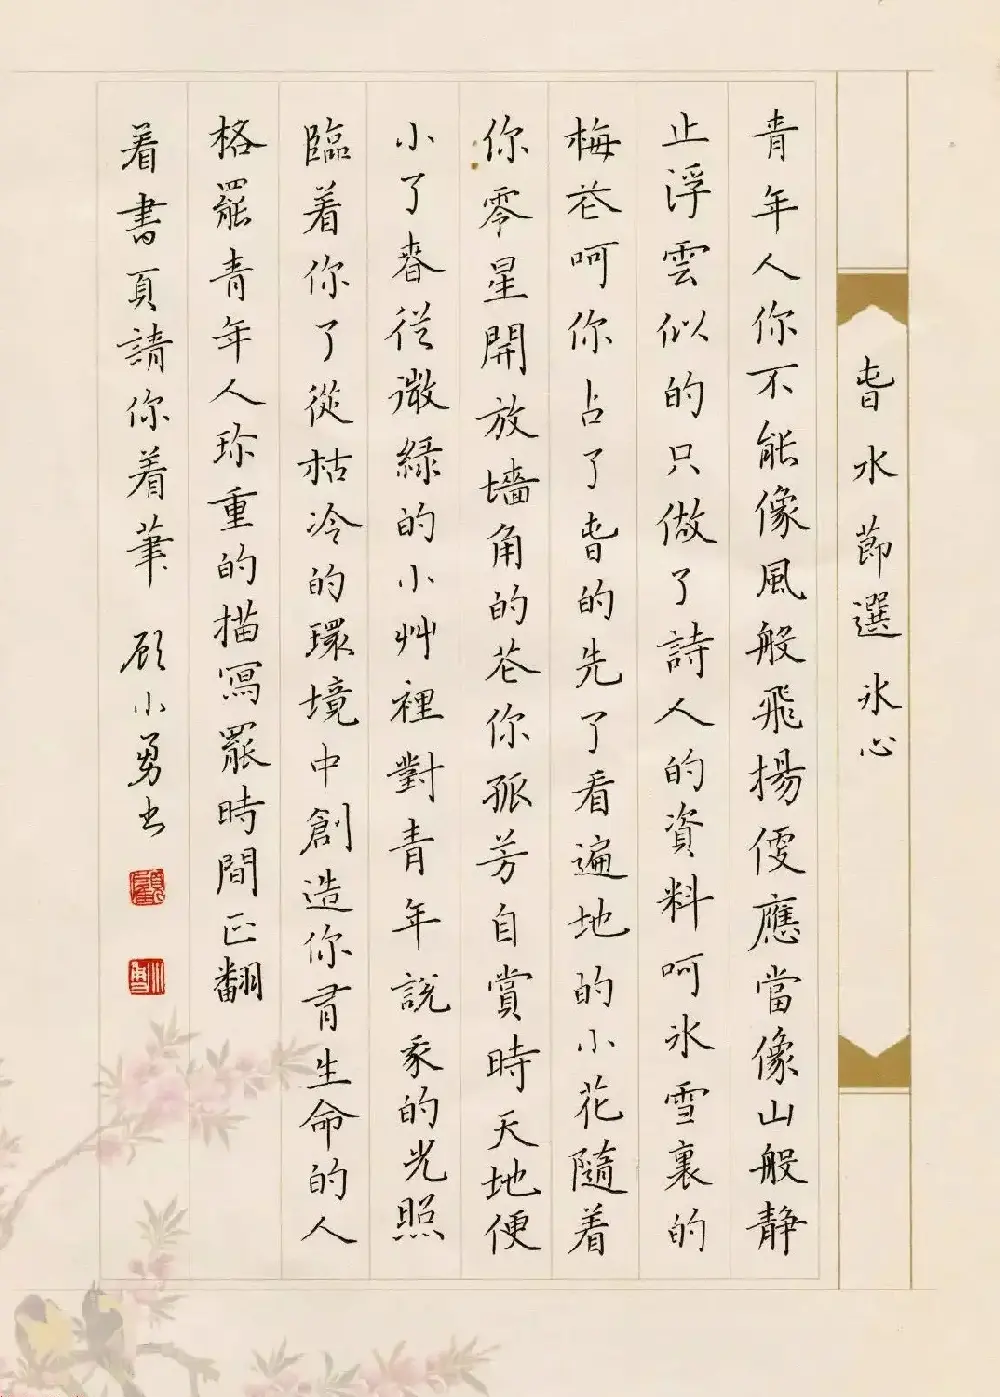 旾水節選 氷心
青年人你不能像風般飛揚便應當像山般静
止浮雲似的只做了詩人的資料呵氷雪裏的
梅花呵你占了旾的先了看遍地的小花隨着
你零星開放墻角的花你孤芳自賞時天地便
小了春從微緑的小艸裡對青年説我的光照
臨着你了從枯冷的環境中創造你有生命的人
格罷青年人珍重的描寫罷時間正翻
着書頁請你着筆 顧小勇书